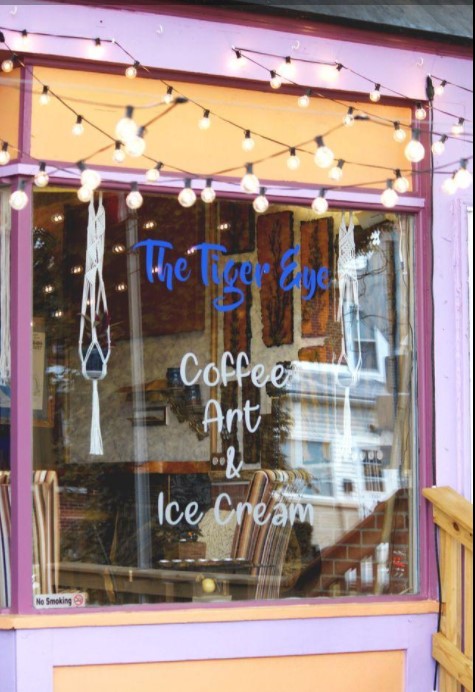 The Tiger Eye
Coffee
Art
&
Ice Cream
No Smoking